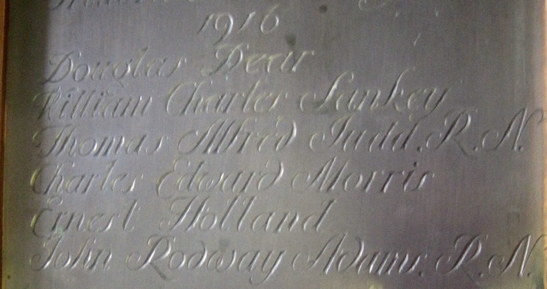 1916
Douglas Dear
William Charles Sankey
Thomas Alfred Judd. R. N.
Charles Edward Morris
Ernest Holland
John Rodway Adams. R. N.